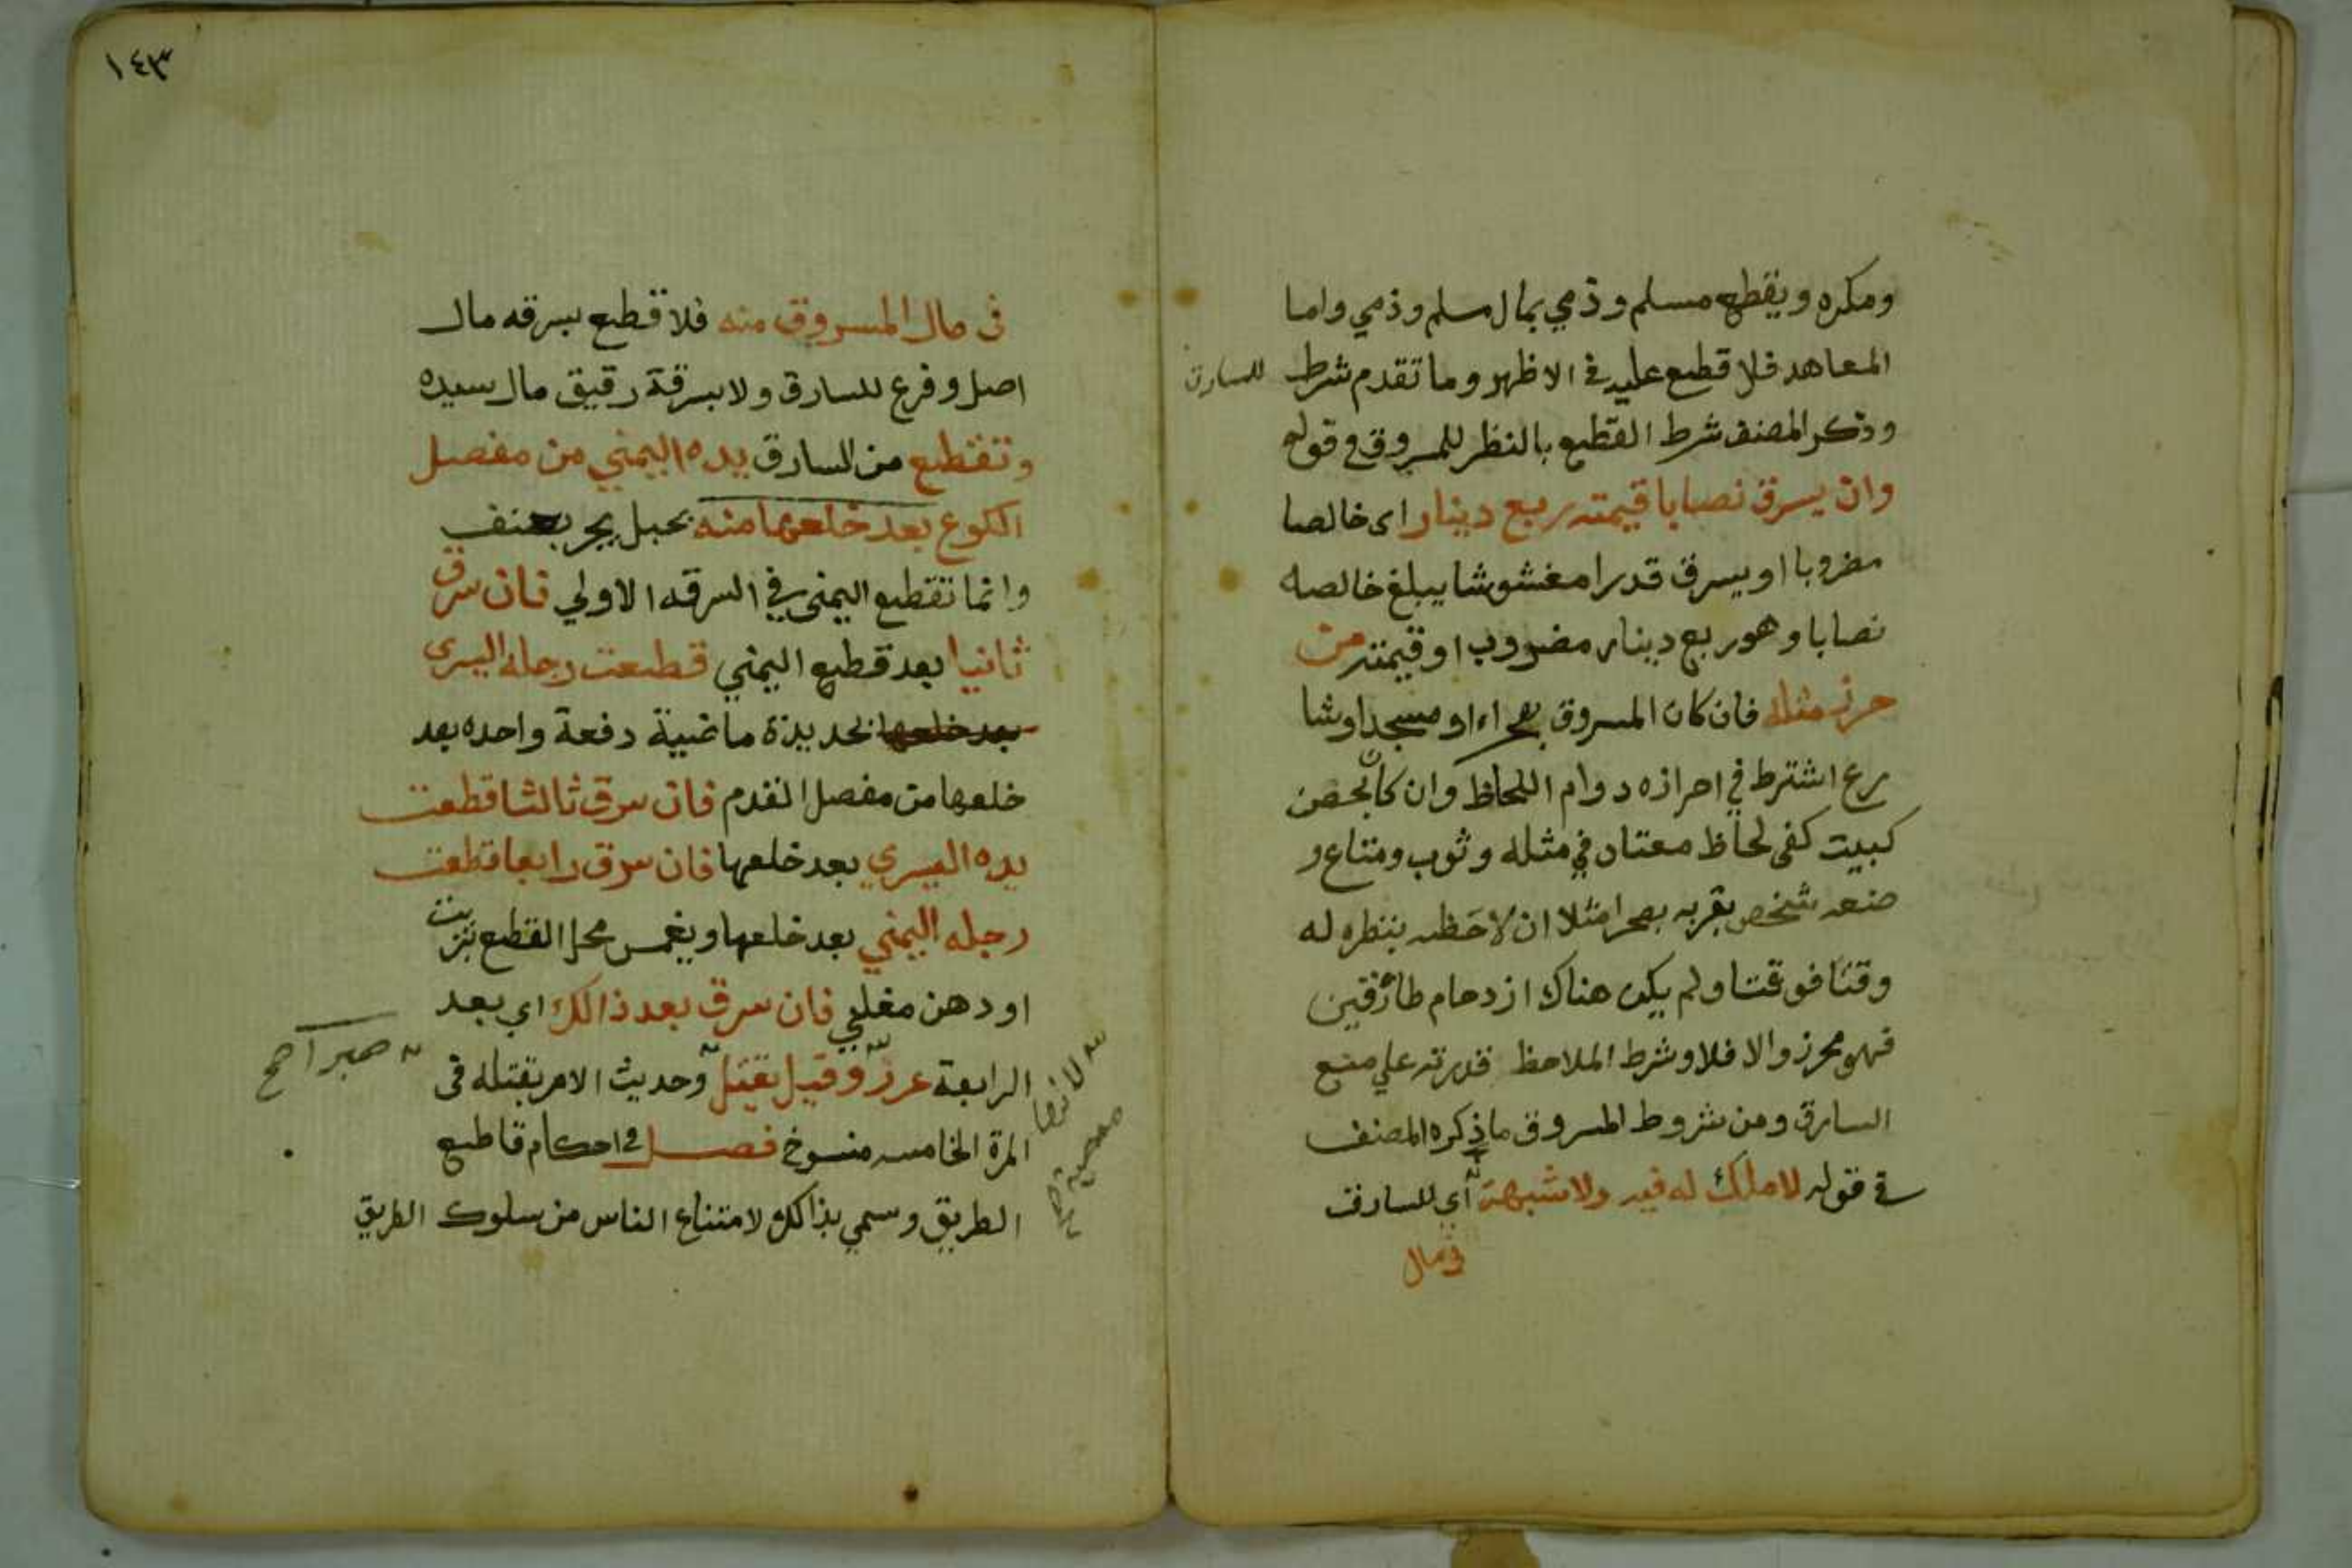 ومكره ويقطع مسلم وذمي بمال مسلم وذمي واما
المعاهد فلا قطع عليه في الاظهر وما تقدم شرط للسارق
وذكر المصنف شرط القطع بالنظر للمسروق في قوله
وان يسرق نصابا قيمته ربع دينار اى خالصا
مضروبا او يسرق قدرا مغشوشا يبلغ خالصه
نصابا وهو ربع دينار مضروب او قيمته من
حرز مثله فان كان المسروق بصحراء او مسجد او شا
رع اشترط في احرازه دوام اللحاظ وان كان بحصن
كبيت كفى لحاظ معتاد في مثله وثوب ومتاع و
ضعه شخص بقربه بصحرا مثلا ان لاحظه بنظره له
وقتا فوقتا ولم يكن هناك ازدحام طارقين
فهو محرز والا فلا وشرط الملاحظ قدرته علي منع
السارق ومن شروط المسروق ما ذكره المصنف
في قوله لا ملك له فيه ولا شبهة أي للسارق
في مال
١٤٣
فى مال المسروق منه فلا قطع بسرقه مال
اصل وفرع للسارق ولا بسرقة رقيق مال سيده
وتقطع من السارق يده اليمني من مفصل
الكوع بعد خلعها منه بحبل يجر بعنف
وانما تقطع اليمنى في السرقه الاولي فان سرق
ثانيا بعد قطع اليمني قطعت رجله اليسرى
بعد خلعها بحديدة ماضية دفعة واحده بعد
خلعها من مفصل القدم فان سرق ثالثا قطعت
يده اليسري بعد خلعها فان سرق رابعا قطعت
رجله اليمني بعد خلعها ويغمس محل القطع بزيت
او دهن مغلي فان سرق بعد ذالك اي بعد
الرابعة عزر وقيل يقتل وحديث الامر بقتله فى
المرة الخامسه منسوخ فصل في احكام قاطع
الطريق وسمي بذالك لامتناع الناس من سلوك الطريق
صبرا صح
لانها
معصية